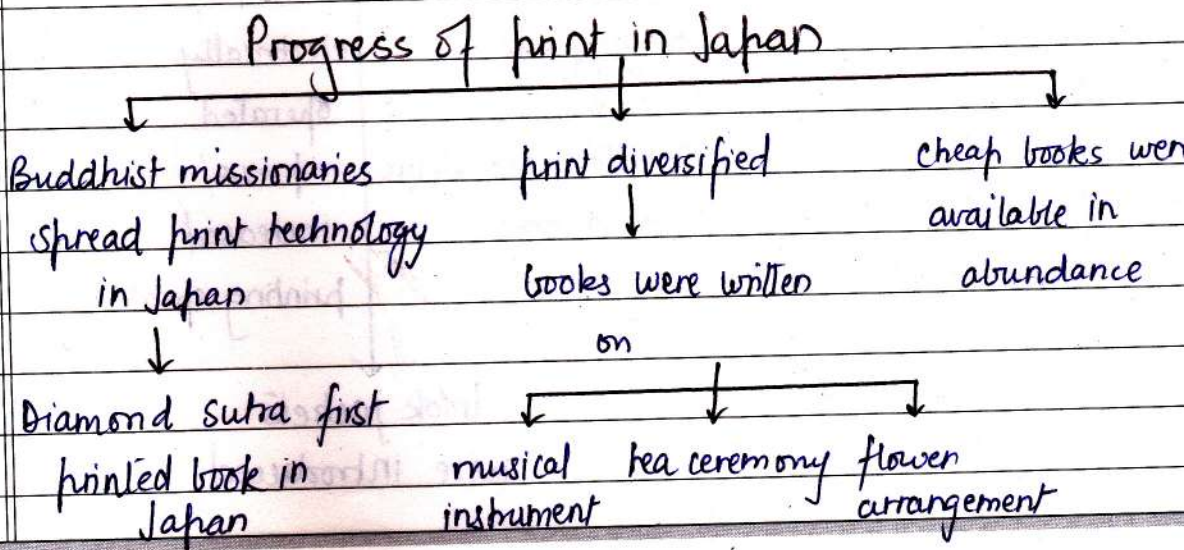 Progress of print in Japan
Buddhist missionaries
spread print technology
in Japan
Diamond sutra first
printed book in
Japan
print diversified
books were written
on
musical
instrument
tea ceremony
flower
arrangement
cheap books wer
available in
abundance